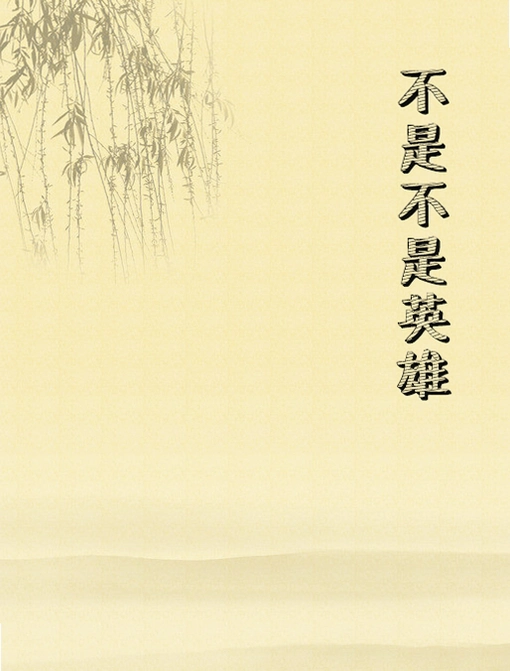 不是不是英雄